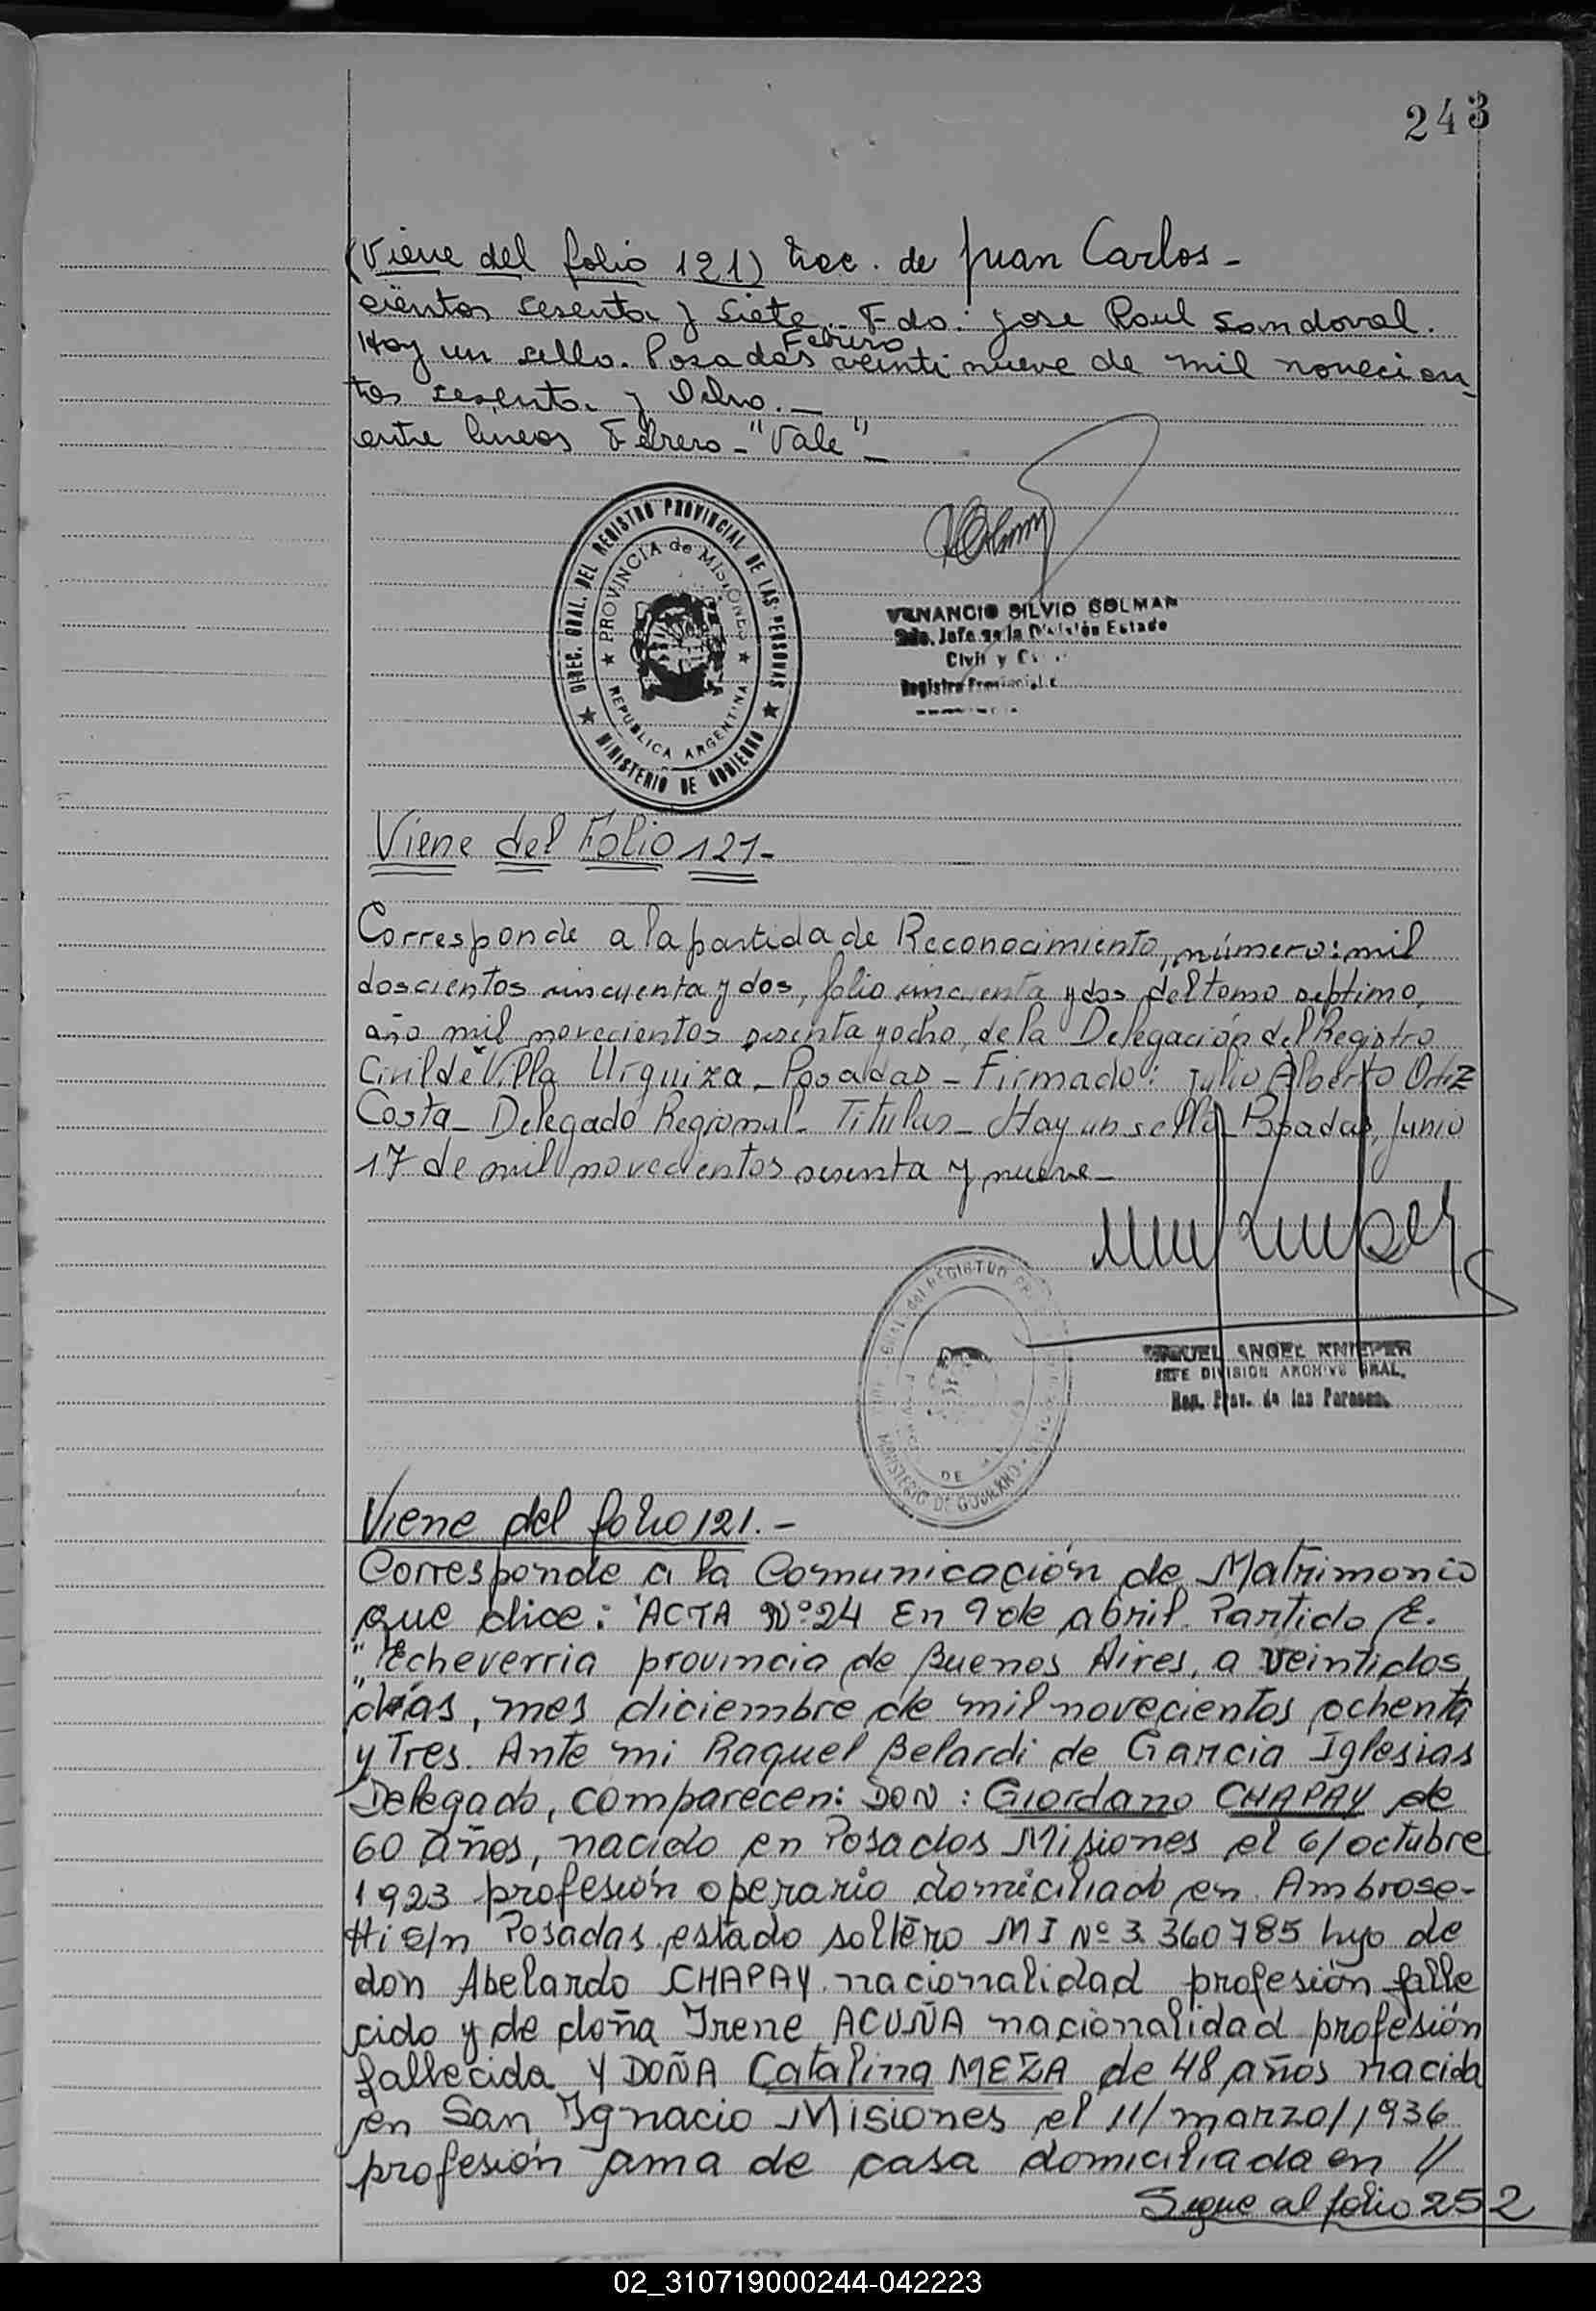 243
(Viene del folio 121) Rec. de Juan Carlos -
cientos sesenta y siete.. Fdo: Jose Raul Sandoval.
Febrero
Hay un sello. Posadas veintinueve de mil novecien-
tos sesenta y Ocho. —
entre lineas Febrero - "Vale" —
DIREC. GRAL. DEL REGISTRO PROVINCIAL DE LAS PERSONAS
★ MINISTERIO DE GOBIERNO ★
★ PROVINCIA de MISIONES ★
REPUBLICA ARGENTINA
VENANCIO SILVIO COLMAN
2do. Jefe de la División Estado
Civil y
Registro Provincial
Viene del Folio 121-
Corresponde a la partida de Reconocimiento, número: mil
doscientos cincuenta y dos, folio cincuenta y dos del tomo septimo,
año mil novecientos sesenta y ocho, de la Delegación del Registro
Civil de Villa Urquiza - Posadas - Firmado: Julio Alberto Ortiz
Costa - Delegado Regional - Titular - Hay un sello - Posadas, Junio
17 de mil novecientos sesenta y nueve -
del REGISTRO
MINISTERIO DE GOBIERNO
DE
MIGUEL ANGEL KNIEPER
JEFE DIVISION ARCHIVO GRAL.
Reg. Prov. de las Personas
Viene del folio 121. -
Corresponde a la Comunicación de Matrimonio
que dice: "ACTA Nº 24 En 9 de abril. Partido E.
"Echeverria provincia de Buenos Aires, a veintidos
"dias, mes diciembre de mil novecientos ochenta
y Tres. Ante mi Raquel Belardi de Garcia Iglesias
Delegado, comparecen: DON: Giordano CHAPAY de
60 años, nacido en Posadas Misiones el 6/octubre
1923 profesión operario domiciliado en Ambrose-
tti s/n Posadas, estado soltero MI Nº 3.360785 hijo de
don Abelardo CHAPAY nacionalidad profesión falle
cido y de doña Irene ACUÑA nacionalidad profesión
fallecida Y DOÑA Catalina MEZA de 48 años nacida
en San Ignacio Misiones el 11/marzo/1936
profesión ama de casa domiciliada en //
Sigue al folio 252
02_310719000244-042223